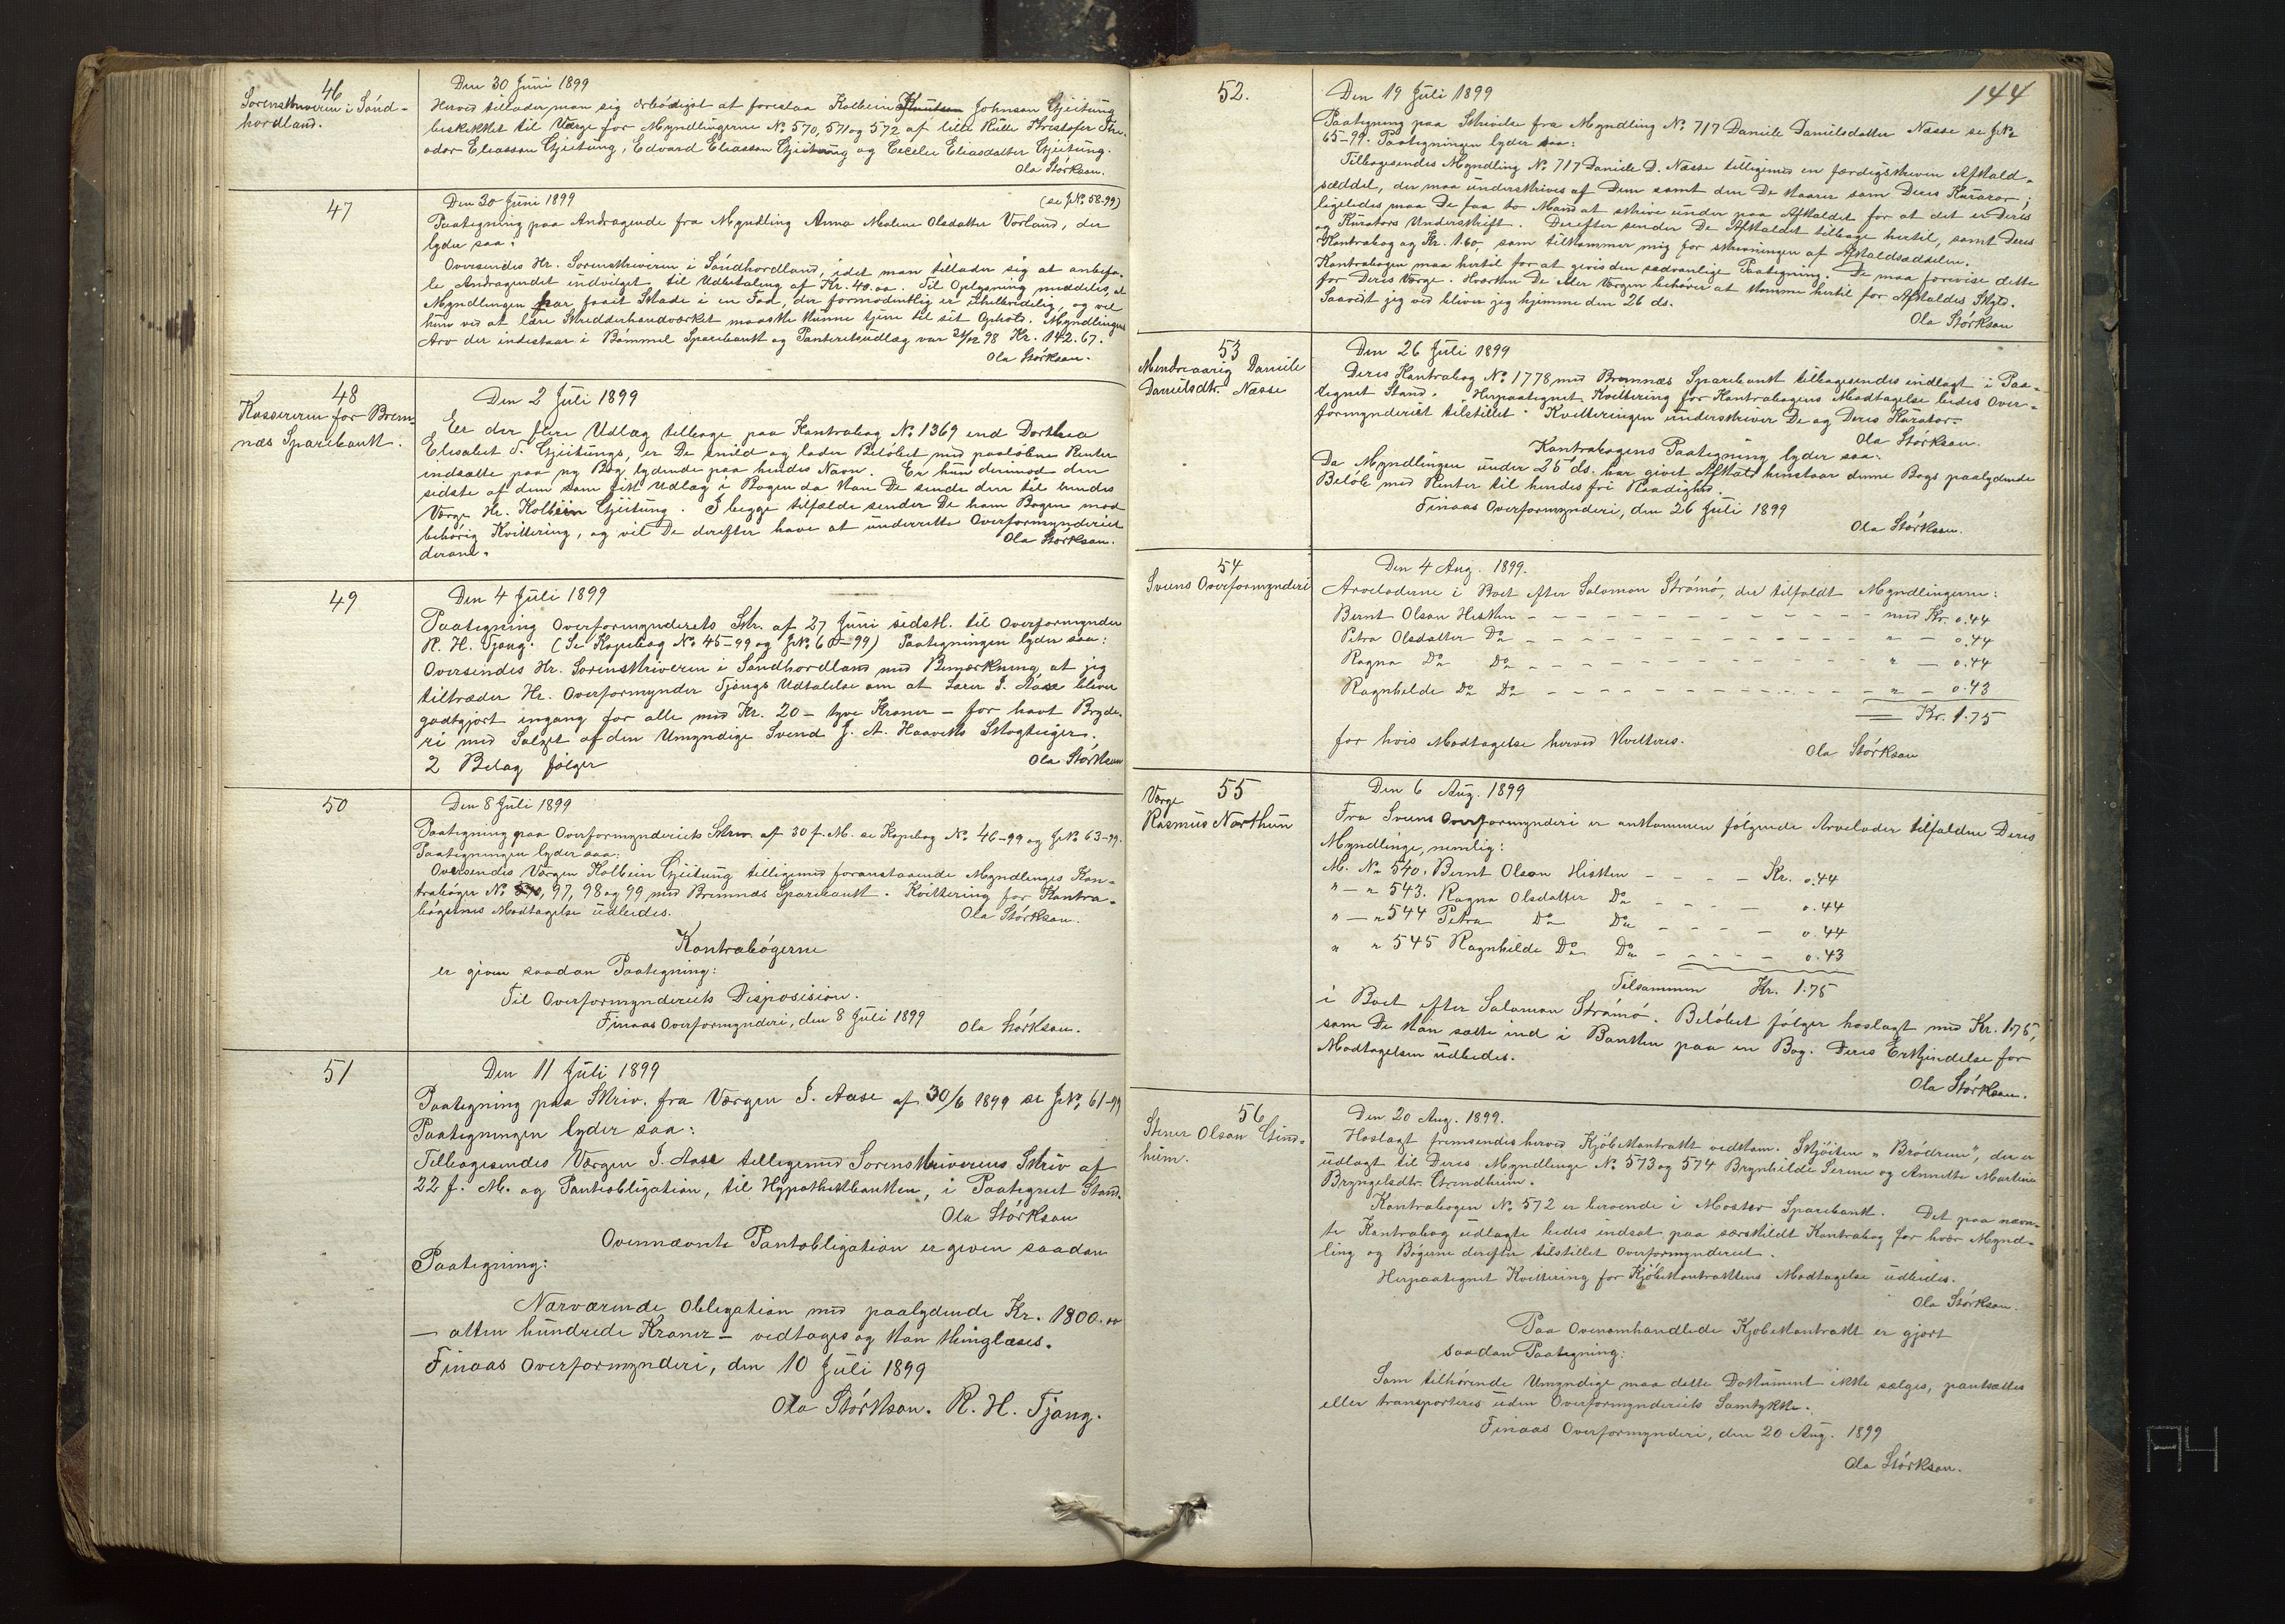 46
Sorenskriveren i Sönd-
hordland.
Den 30 Juni 1899
Herved tillader man sig ærbödigst at foreslaa Kolbein Knutson Johnson Gjeitung
beskikket til Værge for Myndlingerne No 570, 571 og 572 af lille Rulle Kristofer The-
odor Eliasson Gjeitung, Edvard Eliasson Gjeitung og Cecelie Eliasdatter Gjeitung.
Ola Störkson.
47
Den 30 Juni 1899 (se JNo 58-99)
Paategning paa Andragende fra Myndling Anna Malene Olsdatter Vorland, der
lyder saa:
Oversendes Hr. Sorenskriveren i Söndhordland, idet man tillader sig at anbefa-
le Andragendet indvilget til Udbetaling af Kr. 40.00. Til Oplysning meddeles, at
Myndlingen har faaet Skade i en Fod, der formodentlig er uhelbredelig, og vel
hun ved at lære Skredderhandværket maaske kunne tjene til sit Ophold. Myndlingens
Arv der indestaar i Bömmel Sparebank og Panteretsudlæg var 31/12 98 Kr. 142.67.
Ola Störkson.
48
Kassereren for Brem-
næs Sparebank.
Den 2 Juli 1899
Er der flere Udlæg tilbage paa Kontrabog No 1369 end Dorthea
Elisabet J. Gjeitungs, er De snild og lader Belöbet med paalöbne Renter
indsætte paa ny Bog lydende paa hendes Navn. Er hun derimod den
sidste af dem som fik Udlæg i Bogen da kan De sende den til hendes
Værge Hr. Kolbein Gjeitung. I begge tilfælde sender De ham Bogen mod
behörig Kvittering, og vil De derefter have at underrette Overformynderiet
derom. Ola Störkson.
49
Den 4 Juli 1899
Paategning Overformynderets Skr. af 27 Juni sidstl. til Overformynder
R. H. Tjong. (Se Kopibog No 45-99 og JNo 60-99) Paategningen lyder saa:
Oversendes Hr. Sorenskriveren i Söndhordland med Bemærkning, at jeg
tiltræder Hr. Overformynder Tjongs Udtalelse om at Lærer J. Aase bliver
godtgjort engang for alle med Kr. 20 - tyve Kroner - for havt Bryde-
ri med Salget af den Umyndige Svend J. A. Haaviks Skogteiger.
2 Belag følger Ola Störkson
50
Den 8 Juli 1899
Paategning paa Overformynderiets Skriv. af 30 f. M. se Kopibog No 46-99 og JNo 63-99.
Paategningen lyder saa:
Oversendes Værgen Kolbein Gjeitung tilligemed foranstaaende Myndlinges Kon-
trabøger No 570, 97, 98 og 99 med Bremnæs Sparebank. Kvittering for Kontra-
bøgernes Modtagelse udbedes. Ola Störkson.
Kontrabøgerne
er given saadan Paategning:
Til Overformynderiets Disposision.
Finaas Overformynderi, den 8 Juli 1899 Ola Störkson.
51
Den 11 Juli 1899
Paategning paa Skriv. fra Værgen J. Aase af 30/6 1899 se JNo 61-99
Paategningen lyder saa:
Tilbagesendes Værgen J. Aase tilligemed Sorenskriverens Skriv af
22 f. M. og Pantobligation, til Hypothekbanken, i Paategnet Stand.
Ola Störkson
Ovennævnte Pantobligation er given saadan
Paategning:
Nærværende Obligation med paalydende Kr. 1800.00
- atten hundrede Kroner - vedtages og kan thinglæses.
Finaas Overformynderi, den 10 Juli 1899
Ola Störkson. R. H. Tjong.
144
52.
Den 19 Juli 1899
Paategning paa Skrivelse fra Myndling No 717 Daniele Danielsdatter Næsse se JNo
65-99. Paategningen lyder saa:
Tilbagesendes Myndling No 717 Daniele D. Næsse tilligemed en færdigskreven Afkald-
sæddel, der maa underskrives af Dem samt den De kaarer som Deres Kurator;
ligeledes maa De faa to Mænd at skrive under paa Afkaldet for at det er Deres
og Kurators Underskrift. Derefter sender De Afkaldet tilbage hertil, samt Deres
Kontrabog og Kr. 1.60, som tilkommer mig for skrivningen af Afkaldsædelen.
Kontrabogen maa hertil for at gives den sædvanlige Paategning. De maa forevise dette
for Deres Værge. Hverken De eller Værgen behöver at komme hertil for Afkaldes Skyld.
Saavidt jeg ved bliver jeg hjemme den 26 ds.
Ola Störkson
53
Mindreaarig Daniele
Danielsdtr. Næsse
Den 26 Juli 1899
Deres Kontrabog No 1778 med Bremnæs Sparebank tilbagesendes indlagt i Paa-
tegnet Stand. Herpaategnet Kvittering for Kontrabogens Modtagelse bedes Over-
formynderiet tilstillet. Kvitteringen underskriver De og Deres Kurator.
Ola Störkson.
Kontrabogens Paategning lyder saa:
Da Myndlingen under 25 ds. har givet Afkald henstaar denne Bogs paalydende
Beløb med Renter til hendes fri Raadighed.
Finaas Overformynderi, den 26 Juli 1899
Ola Störkson.
54
Sveens Overformynderi
Den 4 Aug. 1899.
Arvelodderne i Boet efter Salomon Strömö, der tilfaldt Myndlingerne:
Bernt Olson Hisken - - - - - med Kr. 0.44
Petra Olsdatter Do - - - - - " - 0.44
Ragna Do Do - - - - - " - 0.44
Ragnhilde Do Do - - - - - " - 0.43
Kr. 1.75
for hvis Modtagelse herved kvitteres.
Ola Störkson
55
Værge
Rasmus Northun
Den 6 Aug. 1899
Fra Sveens Overformynderi er ankommen følgende Arvelodder tilfaldne Deres
Myndlinge, nemlig:
M. No 540. Bernt Olson Hisken - - - - Kr. 0.44
" - " 543. Ragna Olsdatter Do - - - - 0.44
" - " 544 Petra Do Do - - - - 0.44
" " 545 Ragnhilde Do Do - - - - 0.43
Tilsammen Kr. 1.75
i Boet efter Salomon Strömö. Beløbet følger hoslagt med Kr. 1.75,
som De kan sætte ind i Banken paa en Bog. Deres Erkjendelse for
Modtagelsen udbedes.
Ola Störkson.
56
Stener Olson Grind-
heim.
Den 20 Aug. 1899.
Hoslagt fremsendes herved Kjöbekontrakt vedkom. Skjöiten "Brödrene", der er
udlagt til Deres Myndlinge No 573 og 574 Brynhilde Serine og Annette Martine
Bryngelsdtr. Grindheim.
Kontrabogen No 572 er beroende i Moster Sparebank. Det paa nævn-
te Kontrabog udlagte bedes indsat paa særskildt Kontrabog for hver Mynd-
ling og Bøgerne derefter tilstillet Overformynderiet.
Herpaategnet Kvittering for Kjøbekontraktens Modtagelse udbedes.
Ola Störkson.
Paa Ovenomhandlede Kjøbekontrakt er gjort
saadan Paategning:
Som tilhørende Umyndige maa dette Dokument ikke sælges, pantsættes
eller transporteres uden Overformynderiets Samtykke.
Finaas Overformynderi, den 20 Aug. 1899
Ola Störkson.